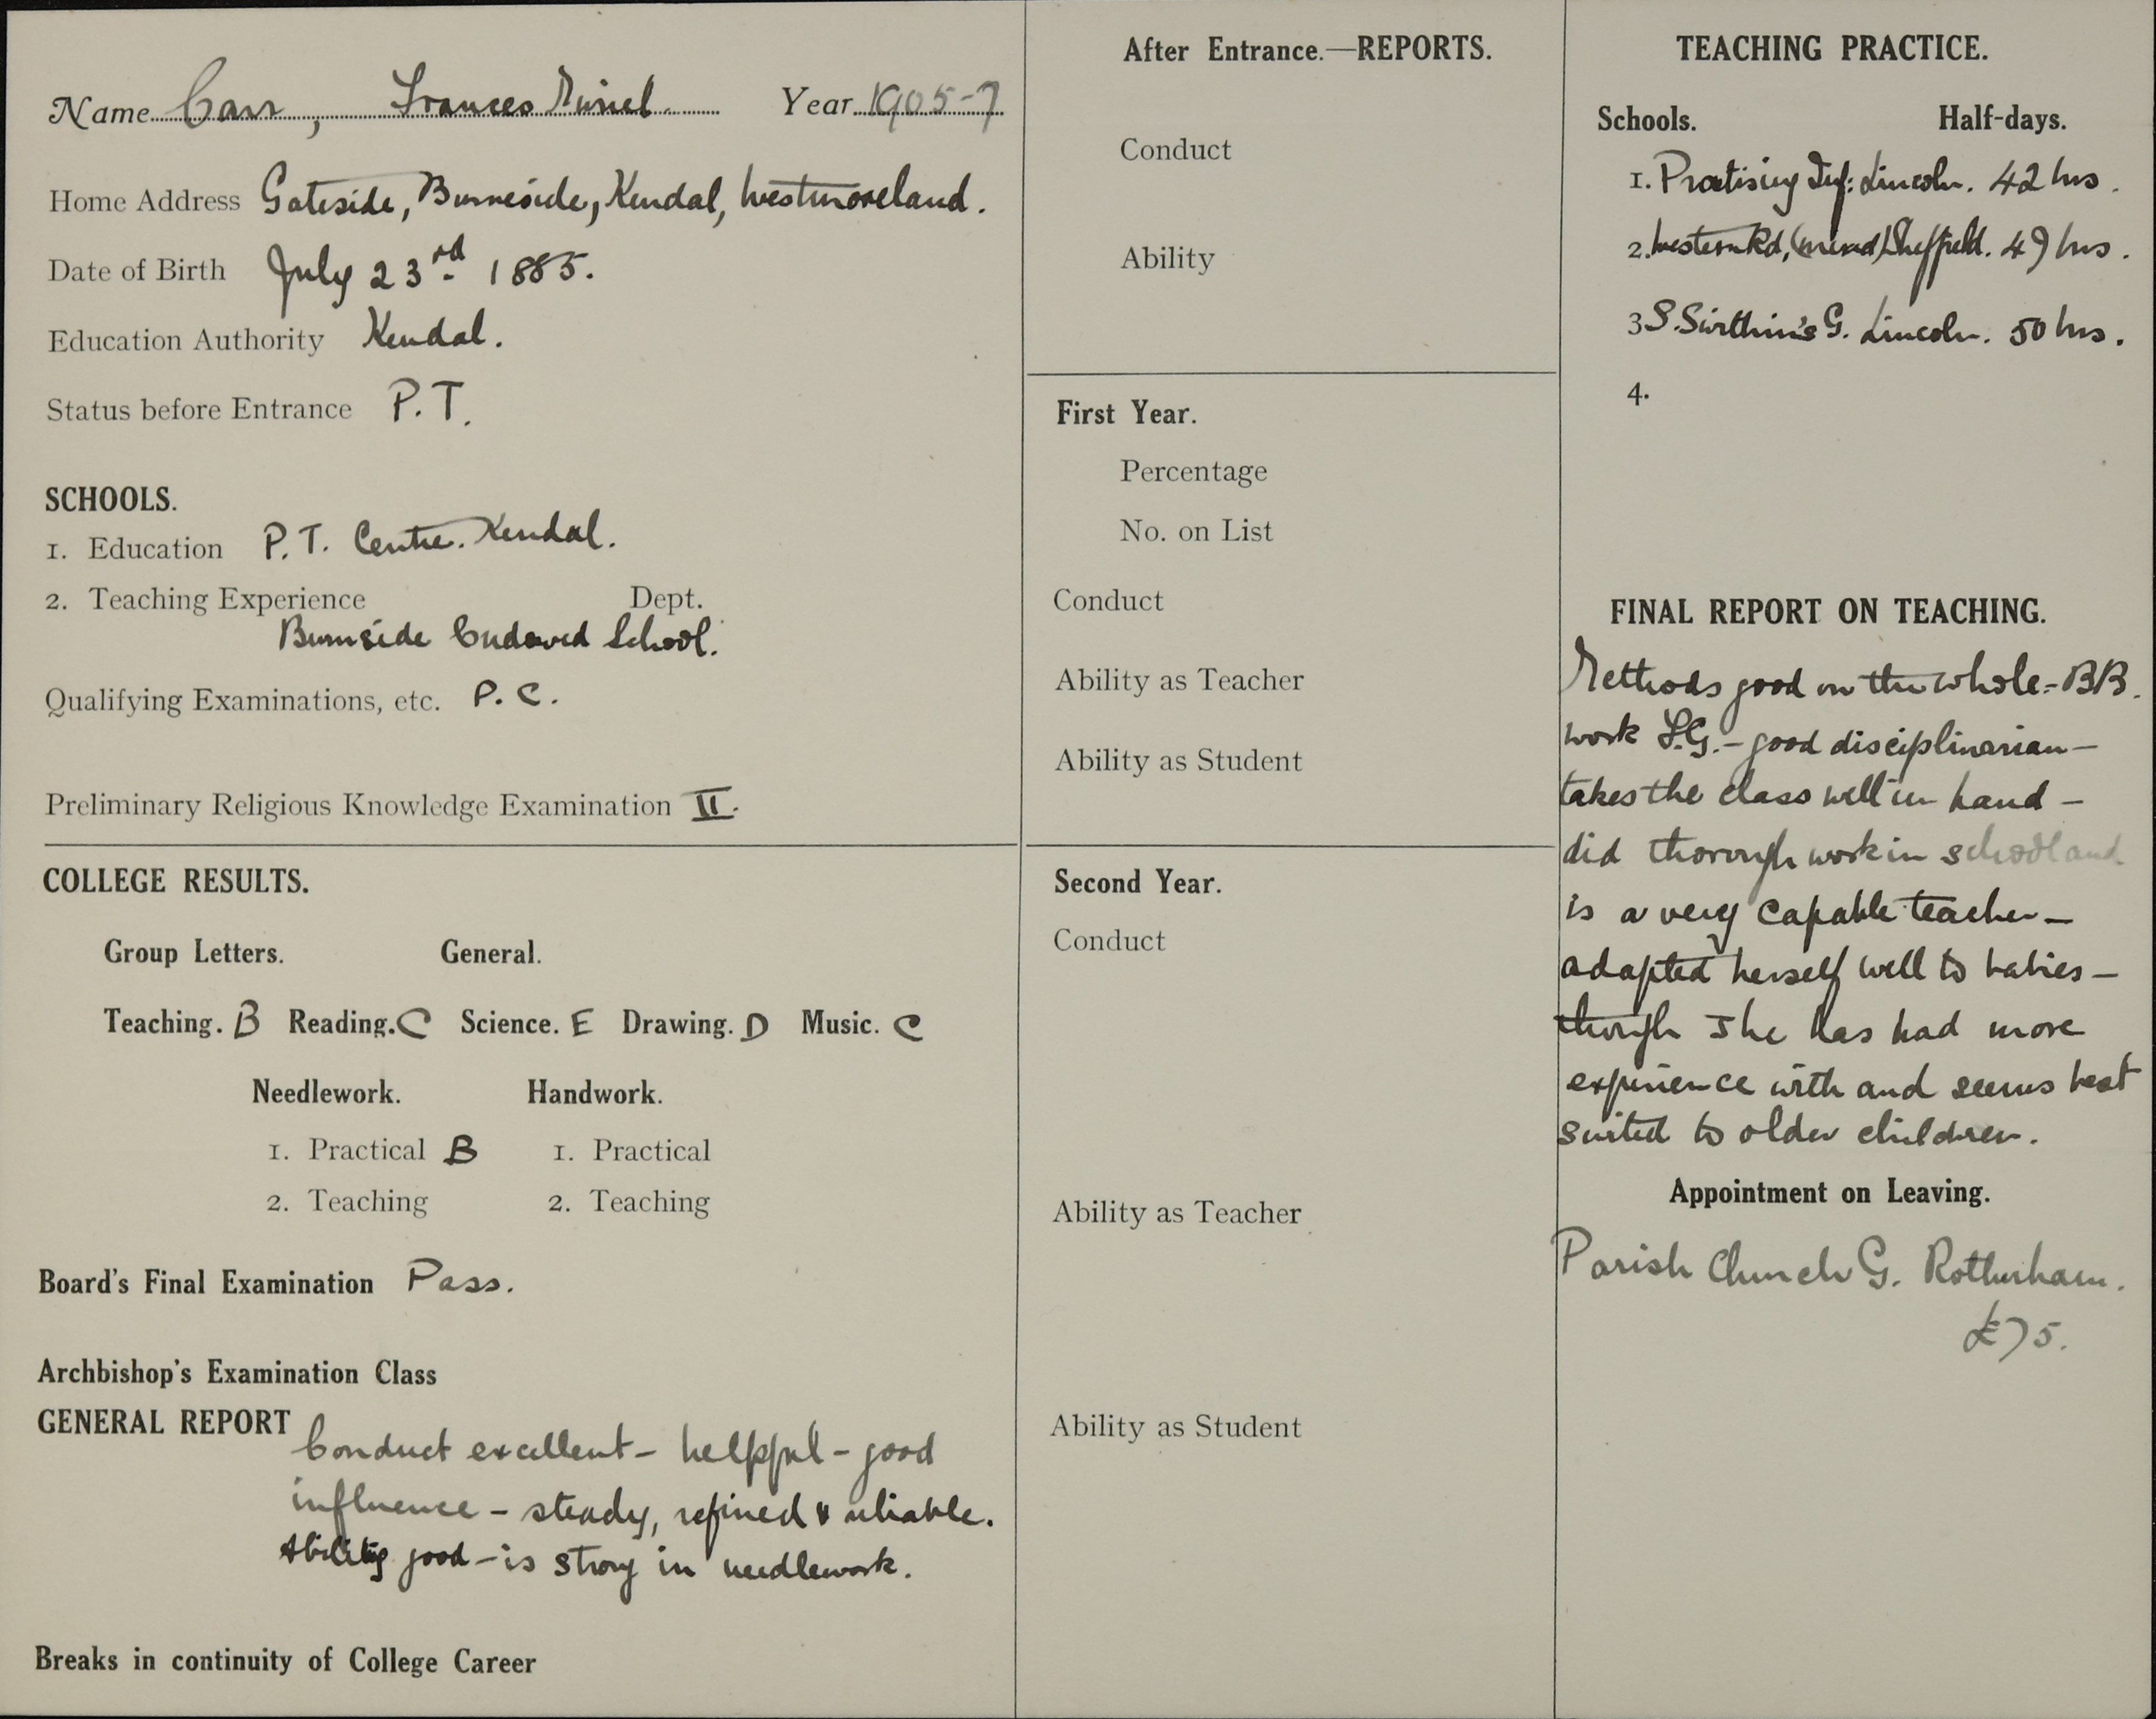 Name Carr, Frances Muriel. Year 1905-7
Home Address Gateside, Burneside, Kendal, Westmoreland.
Date of Birth July 23rd 1885.
Education Authority Kendal.
Status before Entrance P.T.
SCHOOLS.
1. Education P.T. Centre. Kendal.
2. Teaching Experience Dept.
Burnside Endowed School.
Qualifying Examinations, etc. P.C.
Preliminary Religious Knowledge Examination II.
COLLEGE RESULTS.
Group Letters. General.
Teaching. B Reading. C Science. E Drawing. D Music. C
Needlework. Handwork.
1. Practical B 1. Practical
2. Teaching 2. Teaching
Board's Final Examination Pass.
Archbishop's Examination Class
GENERAL REPORT
Conduct excellent - helpful - good
influence - steady, refined & reliable.
Ability good - is strong in needlework.
Breaks in continuity of College Career
After Entrance.—REPORTS.
Conduct
Ability
First Year.
Percentage
No. on List
Conduct
Ability as Teacher
Ability as Student
Second Year.
Conduct
Ability as Teacher
Ability as Student
TEACHING PRACTICE.
Schools. Half-days.
1. Practising Inf: Lincoln. 42 hrs.
2. Western Rd, (mixed) Sheffield. 49 hrs.
3 S. Swithin's G. Lincoln. 50 hrs.
4.
FINAL REPORT ON TEACHING.
Methods good on the whole - BB.
work F.G. - good disciplinarian -
takes the class well in hand -
did thorough work in school and
is a very capable teacher -
adapted herself well to babies -
though she has had more
experience with and seems best
suited to older children.
Appointment on Leaving.
Parish Church G. Rotherham.
£75.